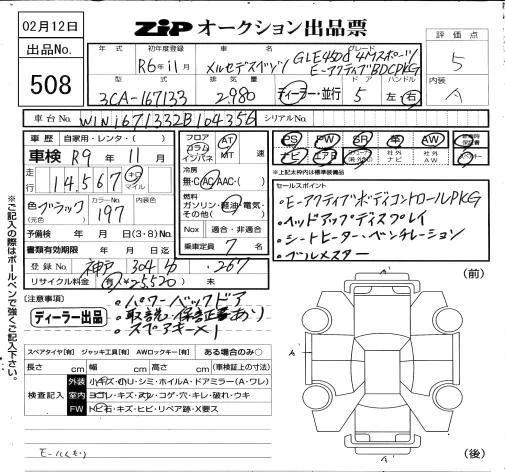 02月12日
出品No.
508
ZIP オークション出品票
評価点
5
内装
A
年式 初年度登録 車名 グレード
R6年11月 メルセデスベンツ GLE450d 4Mスポーツ
E-アクティブBDCPKG
型式 排気量 ドア ハンドル
3CA-167133 2,980 ディーラー・並行 5 左・右
車台No. W1N1671332B104356 シリアルNo.
車歴 自家用・レンタ・( )
車検 R9年 11月
走行 14,567 キロ マイル
色 ブラック (元色) カラーNo. 197 内装色
予備検 年 月 日(3・8)No.
書類有効期限 年 月 日迄
登録No. 神戸 304 も ・267
リサイクル料金 有 ¥25,520 未
フロア コラム インパネ AT MT 速
冷房 無・C・AC・AAC・( )
燃料 ガソリン・軽油・電気・その他( )
Nox 適合・非適合
乗車定員 7 名
PS PW SR 革 AW
ナビ エアB 社外ナビ 社外AW
*上記太枠内は標準装備品
セールスポイント
・E-アクティブボディコントロールPKG
・ヘッドアップディスプレイ
・シートヒーター・ベンチレーション
・ブルメスター
(注意事項)
ディーラー出品
・パワーバックドア
・取説・保証書あり
・スペアキー×1
スペアタイヤ【有】 ジャッキ工具【有】 AWロックキー【有】 ある場合のみ○
長さ cm 幅 cm 高さ cm (車検証上の寸法)
検査記入
外装 小キズ・小リ・シミ・ホイルA・ドアミラー(A・ワレ)
室内 ヨゴレ・キズ・スレ・コゲ・穴・キレ・破れ・ウキ
FW トビ石・キズ・ヒビ・リペア跡・X要ス
(前)
(後)
※ご記入の際はボールペンで強くご記入下さい。